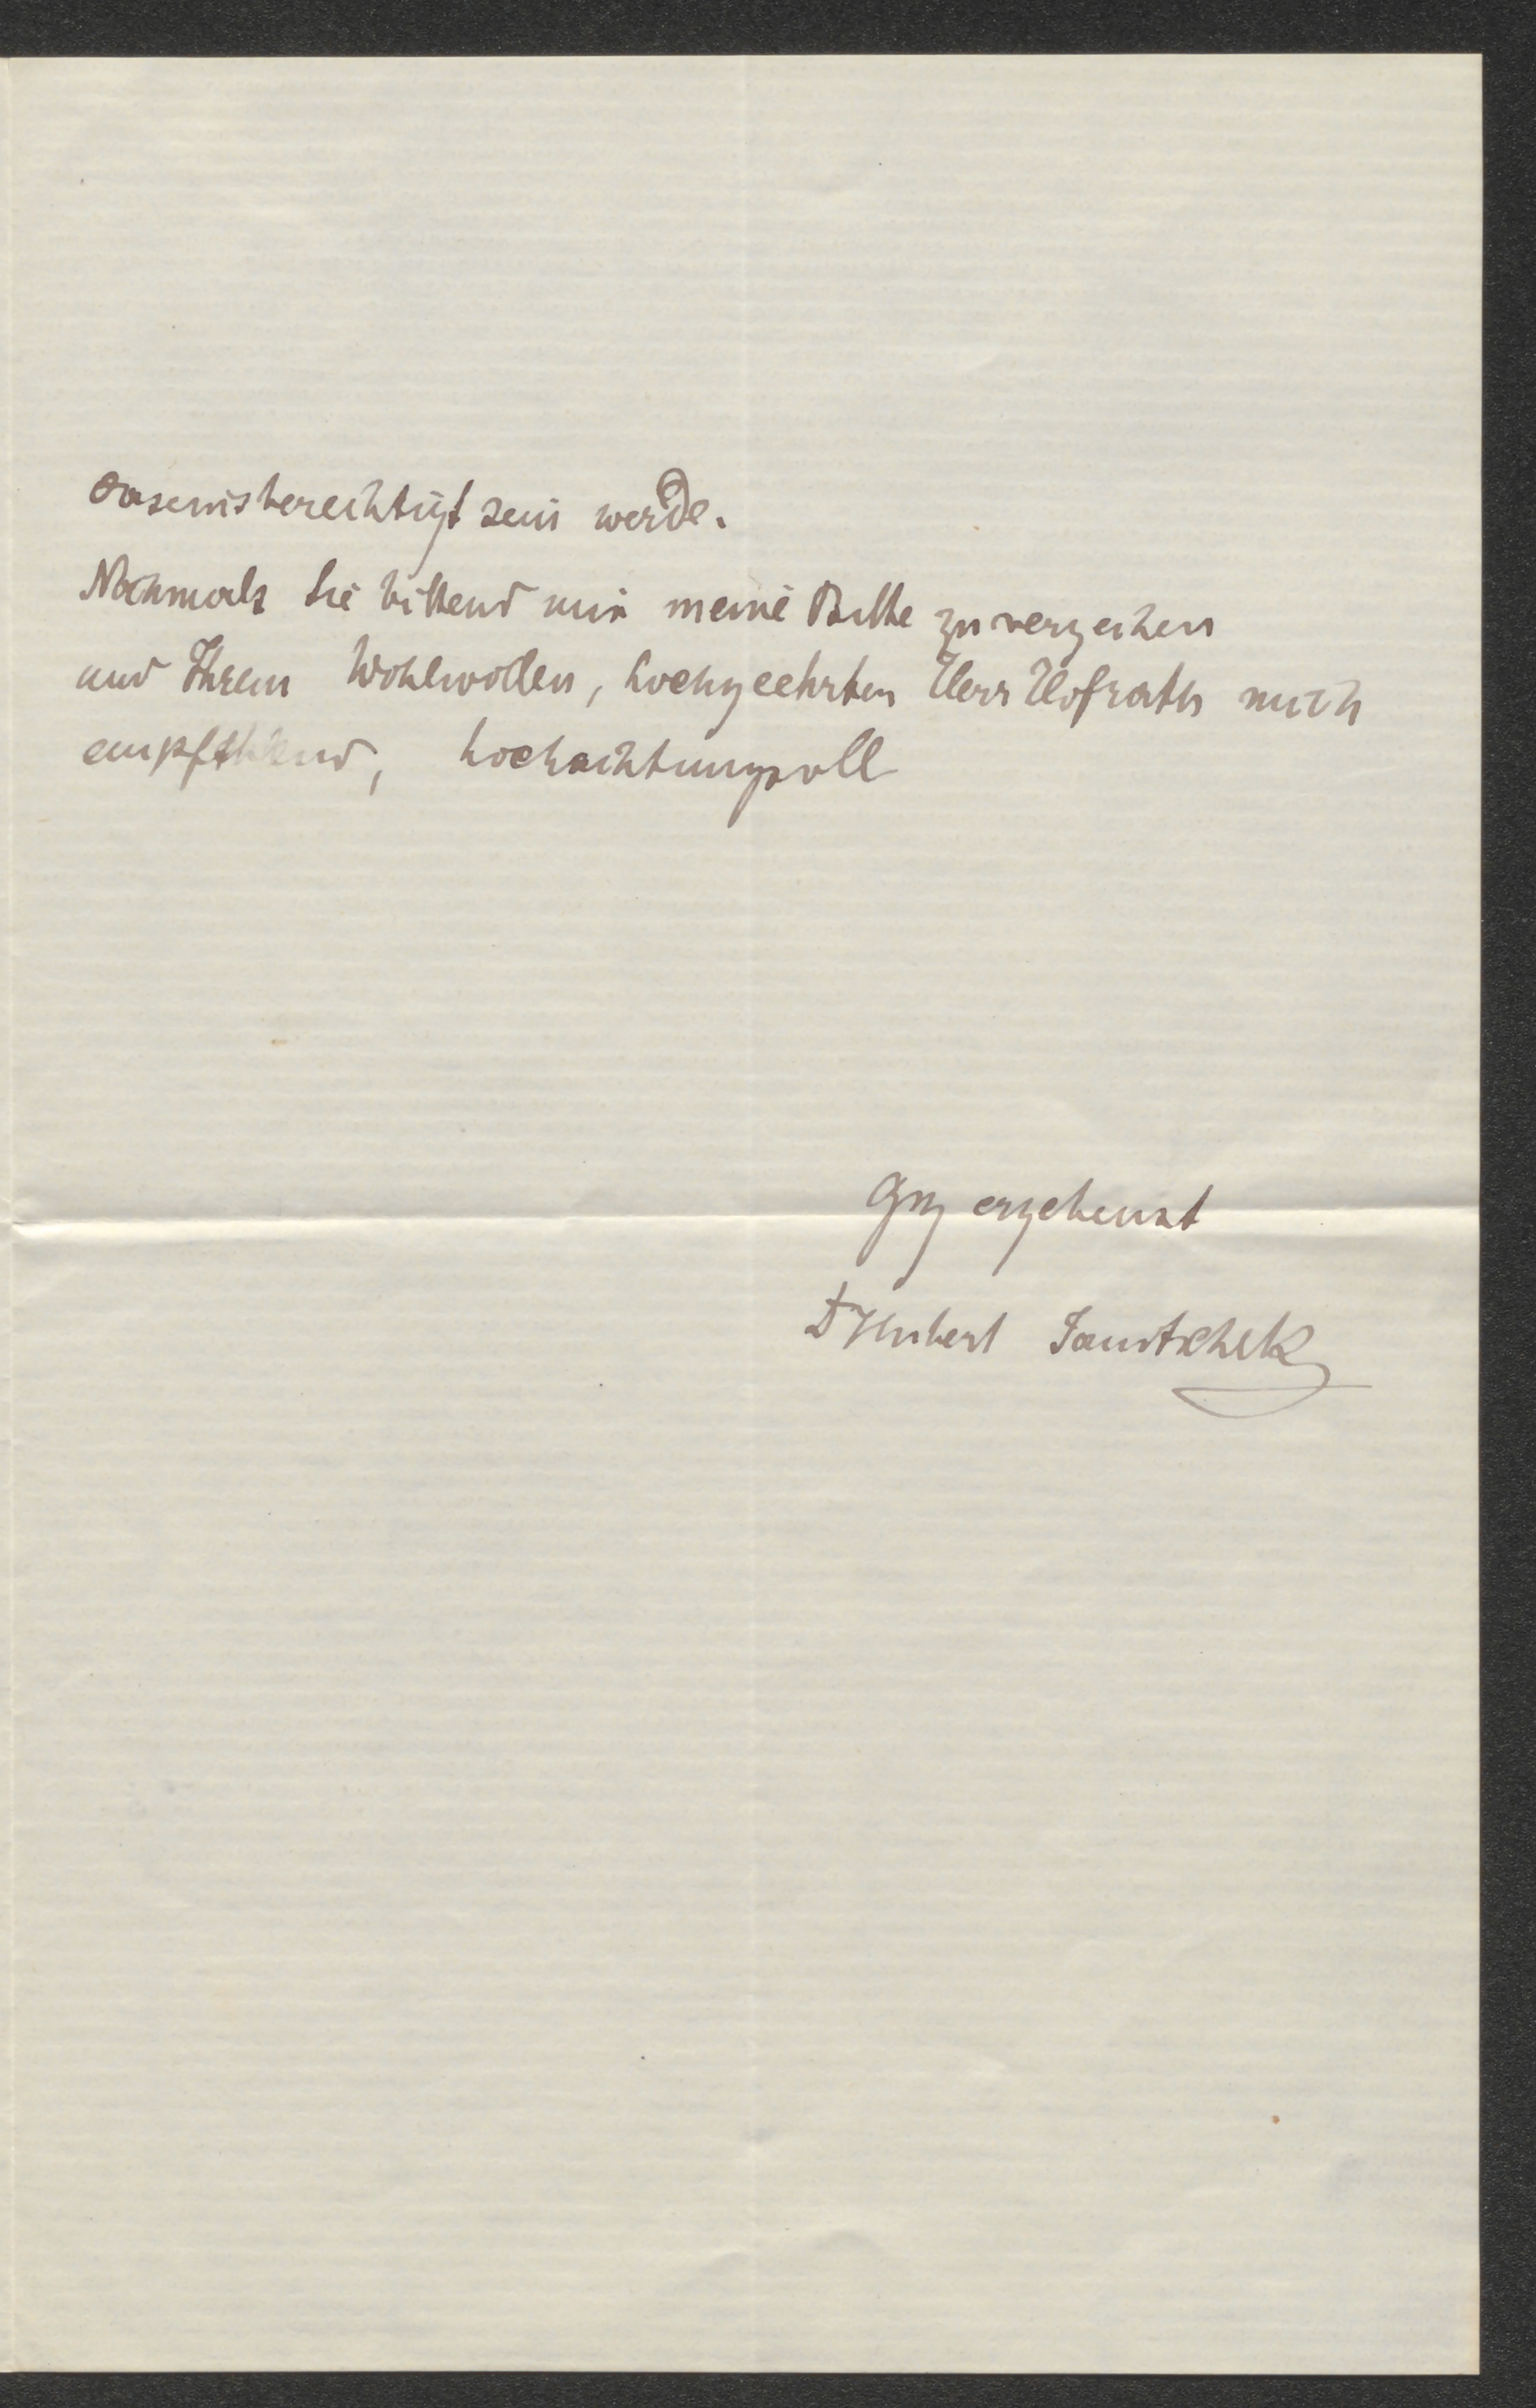 daseinsberechtigt sein werde.
Nochmals Sie bittend mir meine Bitte zu verzeihen
und Ihrem Wohlwollen, hochgeehrter Herr Hofrath mich
empfehlend, hochachtungsvoll
Gnz ergebenst
Dr Hubert Janitschek